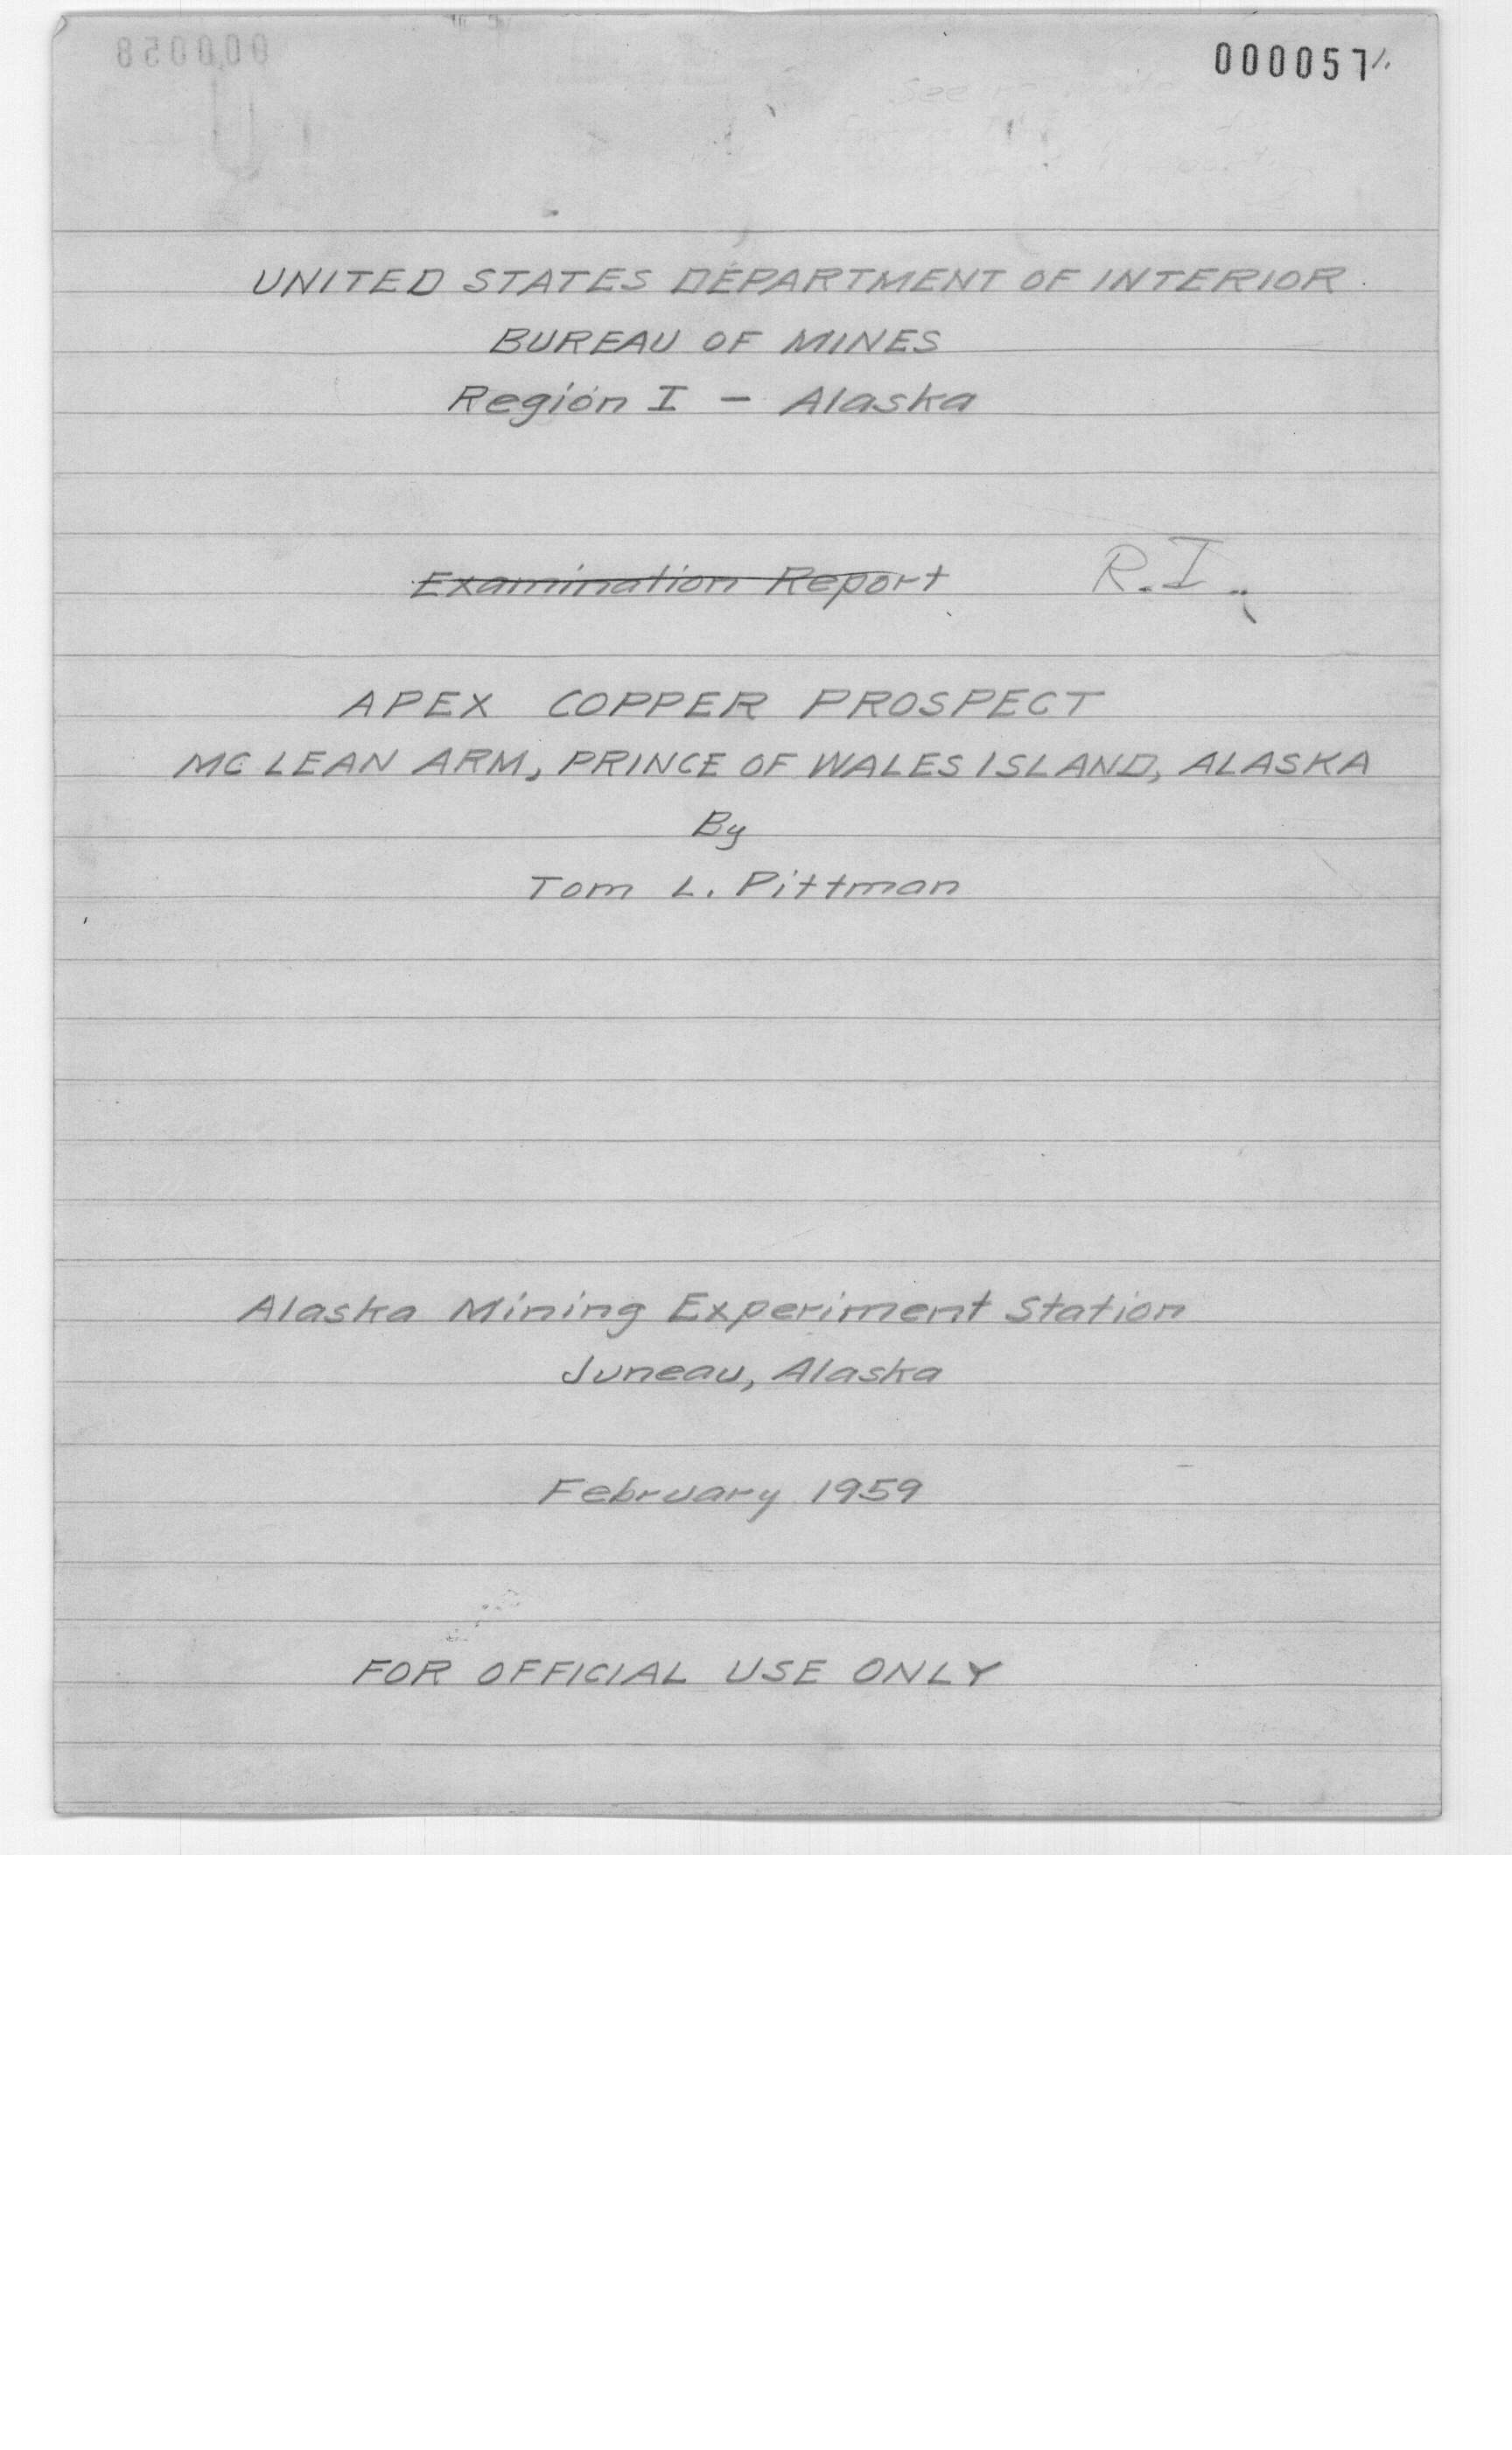 000057
UNITED STATES DEPARTMENT OF INTERIOR
BUREAU OF MINES
Region I - Alaska
Examination Report R.I.
APEX COPPER PROSPECT
MC LEAN ARM, PRINCE OF WALES ISLAND, ALASKA
By
Tom L. Pittman
Alaska Mining Experiment Station
Juneau, Alaska
February 1959
FOR OFFICIAL USE ONLY